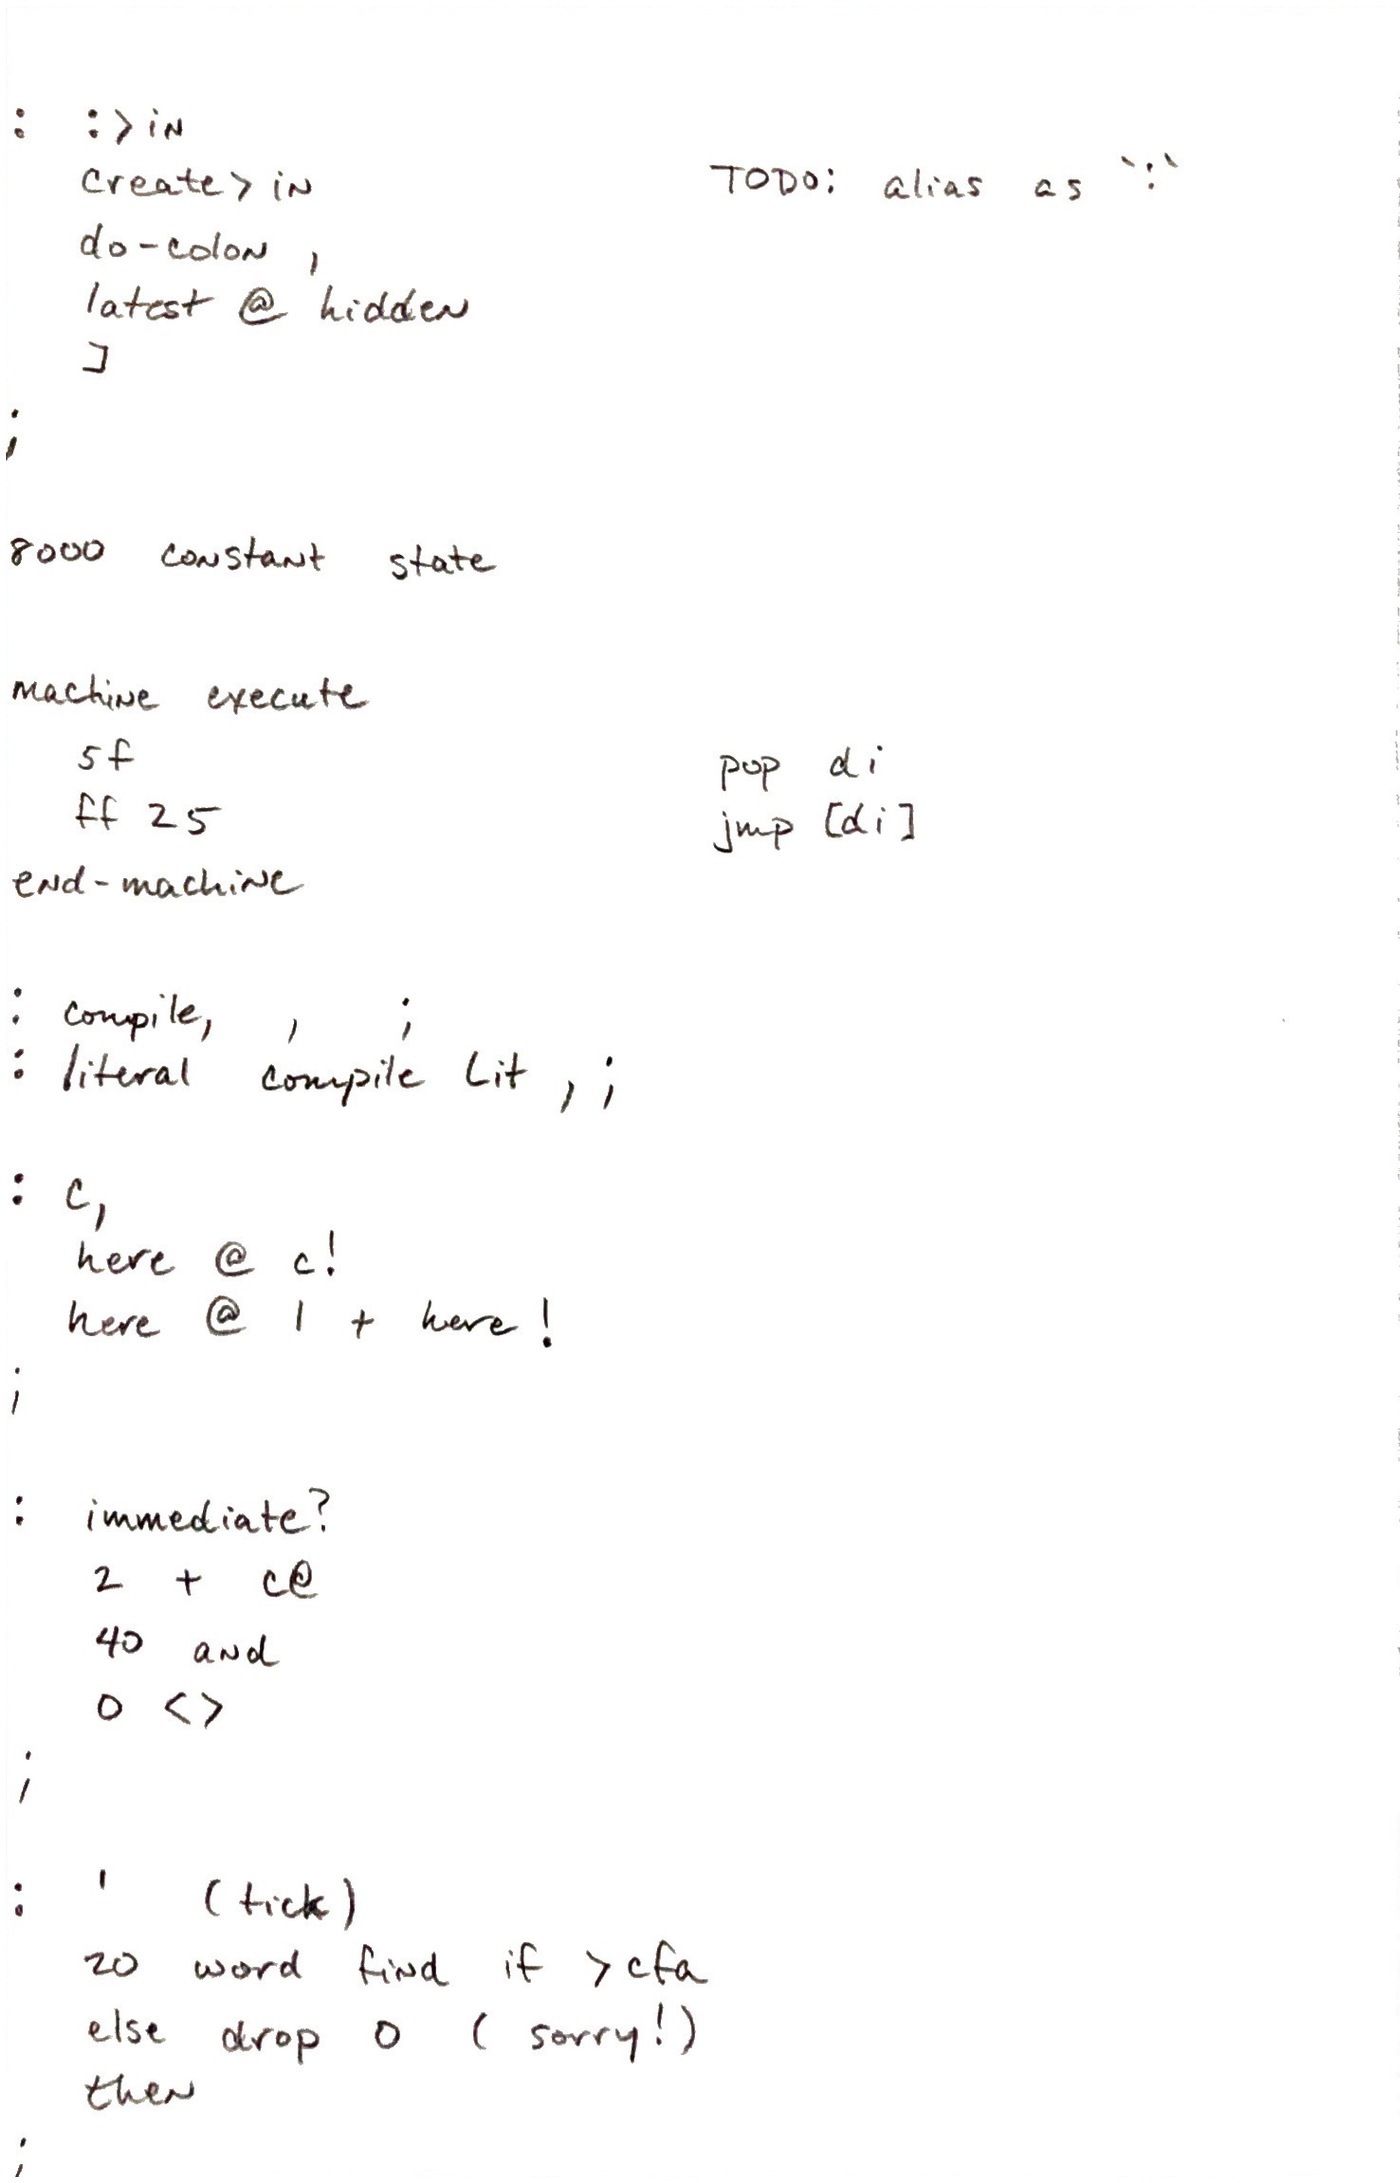 : :>in
create>in TODO: alias as `:`
do-colon ,
latest @ hidden
]
;
8000 constant state
machine execute
5f pop di
ff 25 jmp [di]
end-machine
: compile, , ;
: literal compile lit , ;
: c,
here @ c!
here @ 1 + here !
;
: immediate?
2 + c@
40 and
0 <>
;
: ' (tick)
20 word find if >cfa
else drop 0 ( sorry!)
then
;